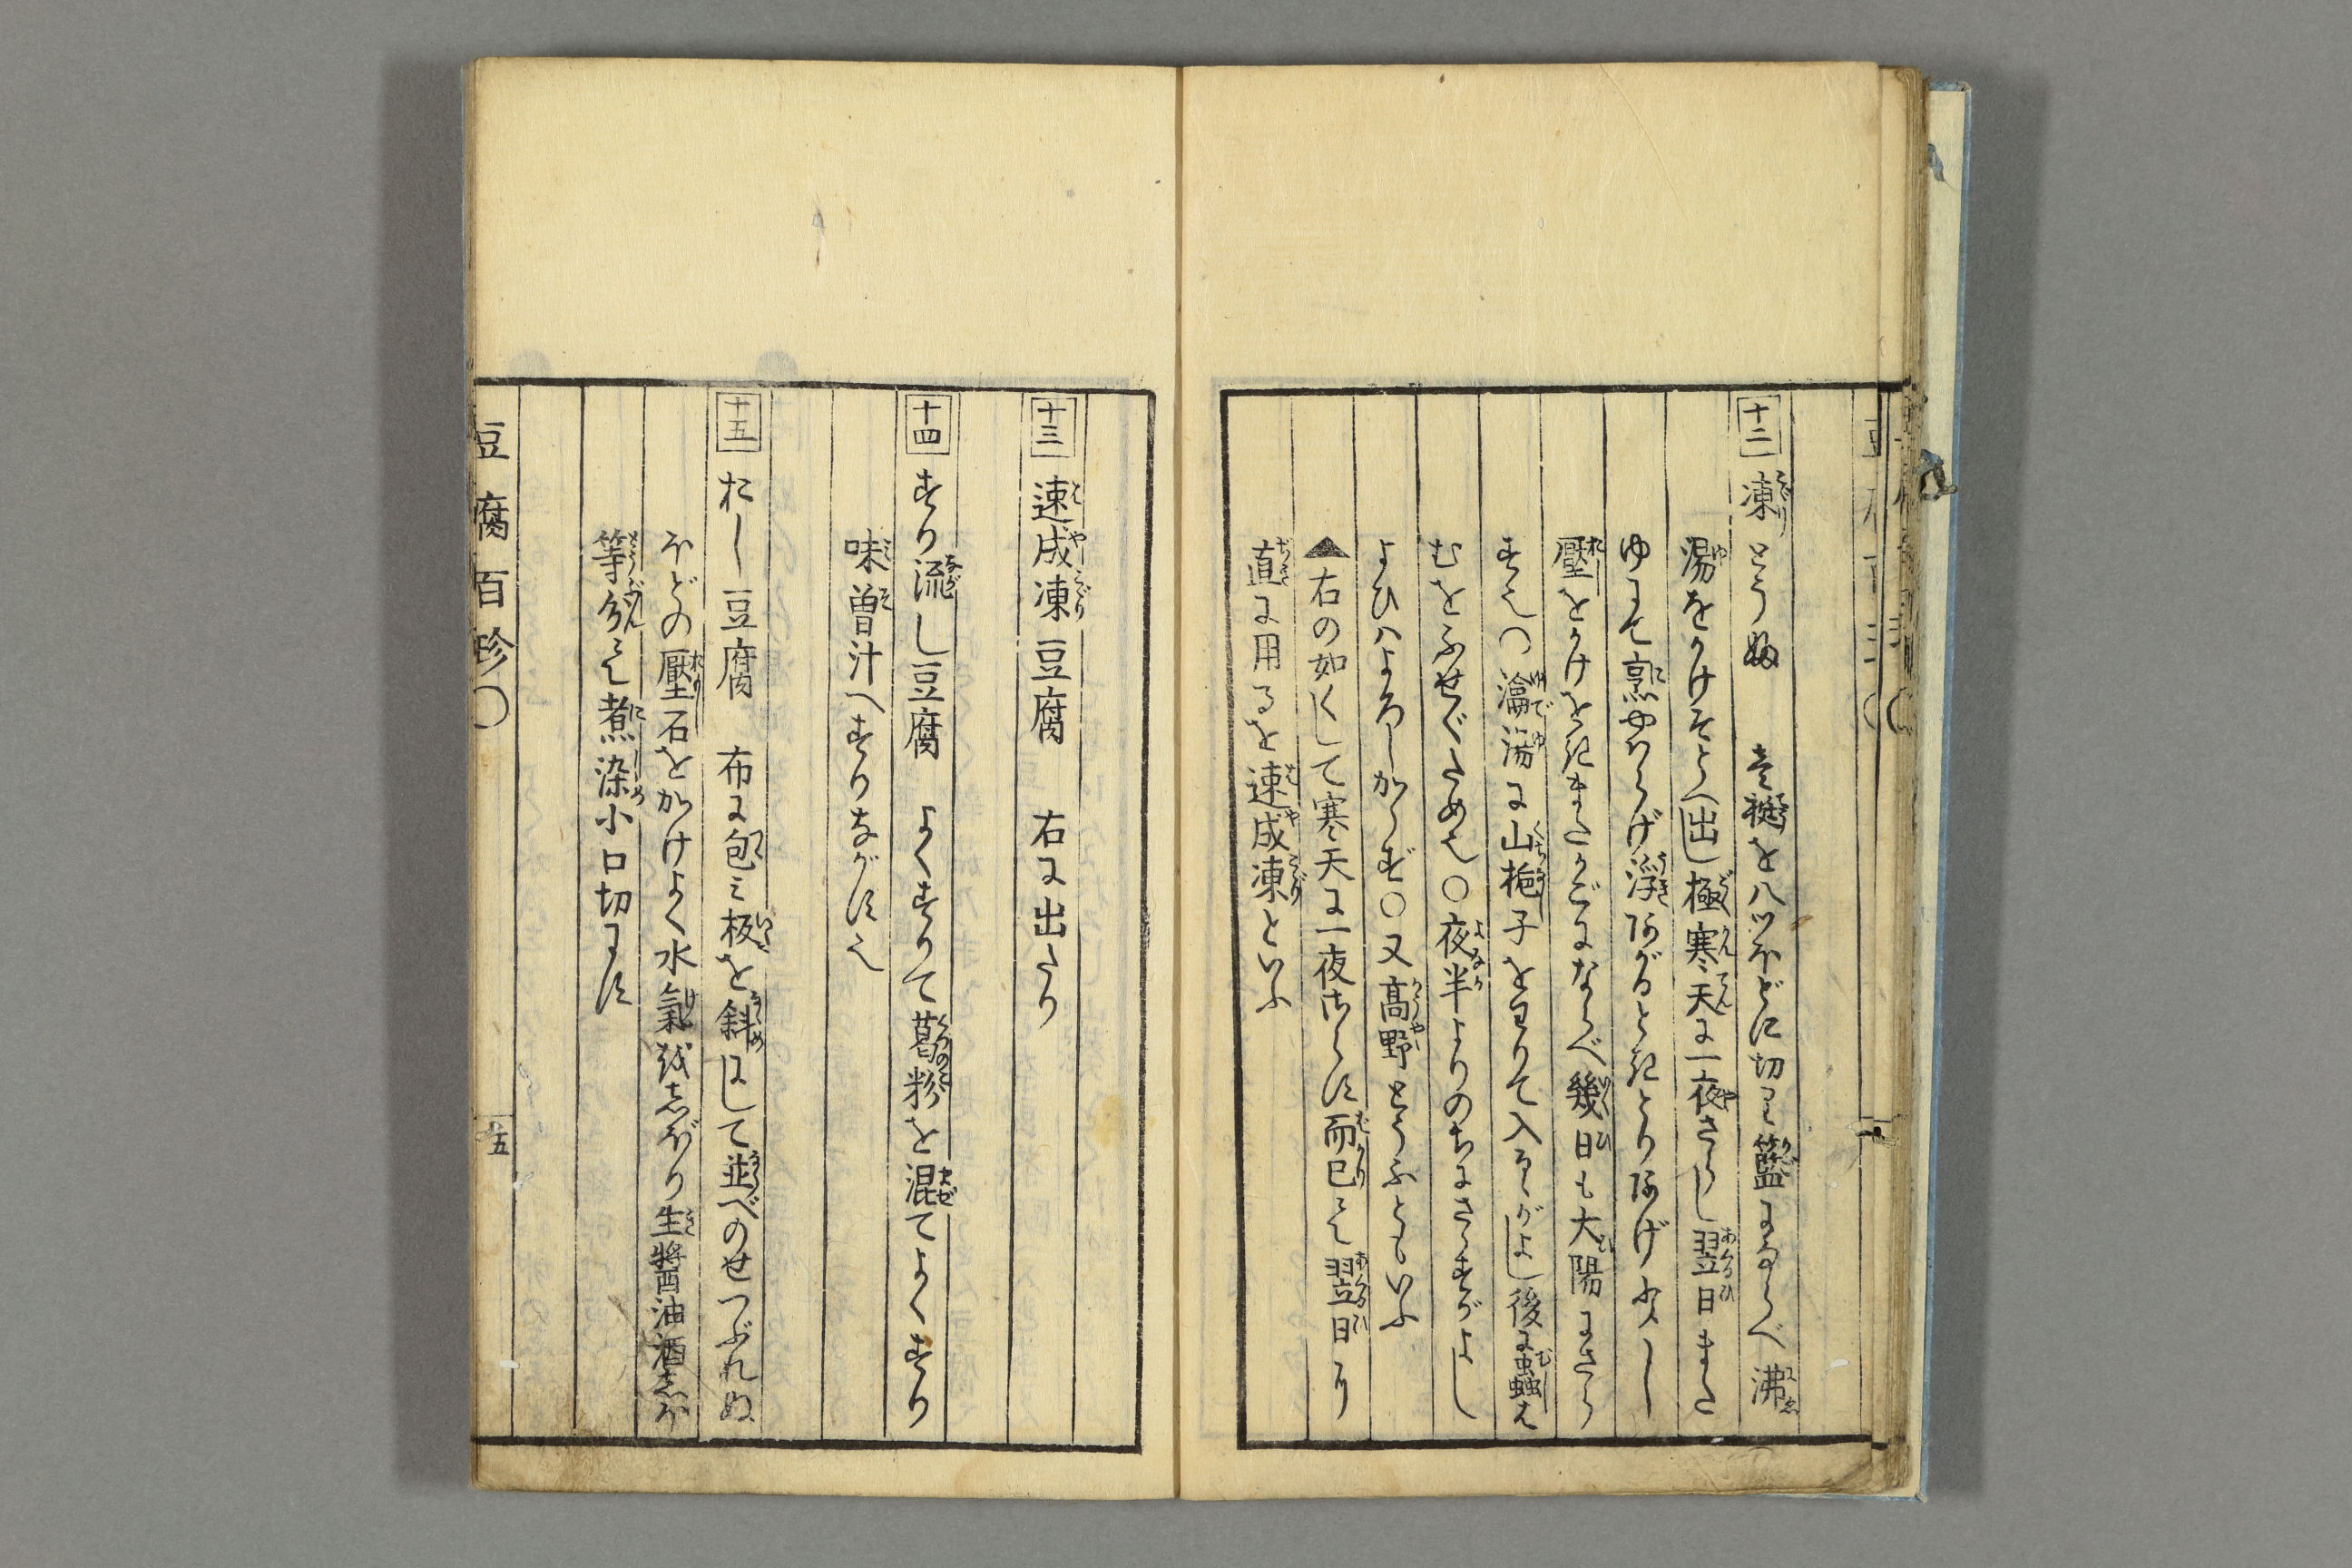 十二 凍とうふ 壱挺を八ツほどに切り籃にならべ沸
湯をかけそとへ出し極寒天に一夜さらし翌日また
ゆにて烹やはらげ浮あがるときとりあげ少し
壓をかけをきまたかごにならべ幾日も大陽にさら
す也〇瀹湯に山梔子をわりて入るゝがよし後に蟲は
むをふせぐため也〇夜半よりのちにさらすがよし
よひハよろしからず〇又高野とうふともいふ
▲右の如くして寒天に一夜さらす而已にて翌日より
直に用るを速成凍といふ
十三 速成凍豆腐 右に出たり
十四 すり流し豆腐 よくすりて葛粉を混てよくすり
味曽汁へすりながす也
十五 おし豆腐 布に包ミ板を斜にして並べのせつぶれぬ
ほどの壓石をかけよく水氣をしぼり生醤油酒しほ
等分にて煮染小口切にす
豆腐百珍〇
五